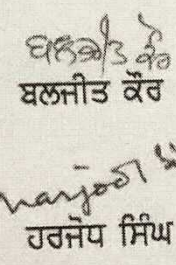 ਬਲਜੀਤ ਕੌਰ
ਬਲਜੀਤ ਕੌਰ
ਹਰਜੋਧ ਸਿੰਘ